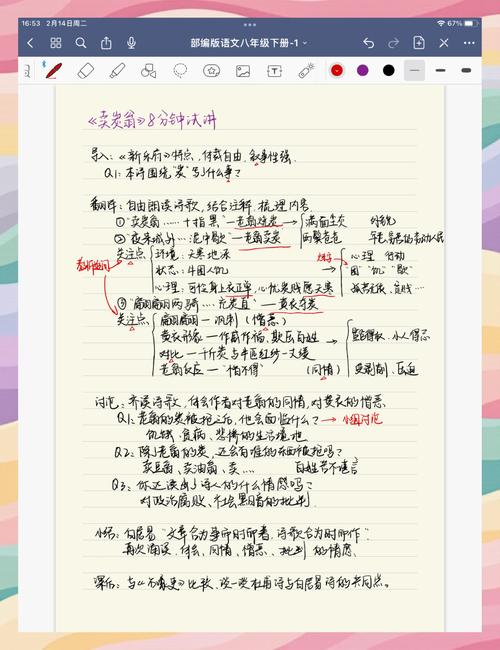 16:53 2月14日周二
67%
部编版语文八年级下册-1
《卖炭翁》8分钟试讲
导入:《新乐府》特点,体裁自由,叙事性强.
Q1:本诗围绕"炭"写了什么事?
翻译:自由朗读诗歌,结合注释,梳理内容.
①"卖炭翁……十指黑"—老翁烧炭 → 满面尘灰 外貌
②"夜来城外…泥中歇"—老翁卖炭 两鬓苍苍
关注点 环境:天寒地冻 心理 行动
状态:牛困人饥 困"饥""歇"
心理:可怜身上衣正单,心忧炭贱愿天寒
③"翩翩两骑…充炭直"—黄衣夺炭
关注点 翩翩—讽刺(憎恶)
黄衣形象—作威作福、欺压百姓
对比—千斤炭与半匹红绡一丈绫
老翁反应—"惜不得" (同情)
讨论:齐读诗歌,体会作者对老翁的同情,对黄衣的憎恶.
Q1:老翁的炭被抢之后,他会面临什么? → 小组讨论
饥饿、贫病、悲惨的生活境地
Q2:除了老翁的炭,还会有谁的东西被抢吗?
卖豆翁、卖油翁、卖… 百姓苦不堪言
Q3:你还读出了诗人的什么情感吗?
对政治腐败、社会黑暗的批判.
小结:白居易"文章合为时而著,诗歌合为时而作".
再次诵读,体会、同情、憎恶、批判的情感.
课后:与《石壕吏》比较,谈一谈杜甫诗与白居易诗的共同点.